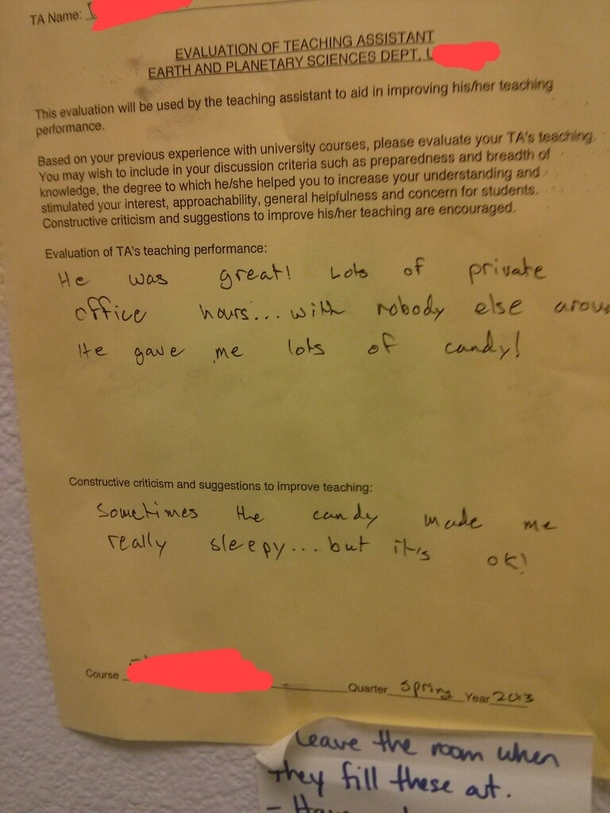 TA Name:
EVALUATION OF TEACHING ASSISTANT
EARTH AND PLANETARY SCIENCES DEPT, U
This evaluation will be used by the teaching assistant to aid in improving his/her teaching
performance.
Based on your previous experience with university courses, please evaluate your TA's teaching.
You may wish to include in your discussion criteria such as preparedness and breadth of
knowledge, the degree to which he/she helped you to increase your understanding and
stimulated your interest, approachability, general helpfulness and concern for students.
Constructive criticism and suggestions to improve his/her teaching are encouraged.
Evaluation of TA's teaching performance:
He was great! Lots of private
office hours... with nobody else arou
He gave me lots of candy!
Constructive criticism and suggestions to improve teaching:
Sometimes the candy made me
really sleepy... but it's ok!
Course
Quarter Spring Year 2013
Leave the room when
they fill these out.